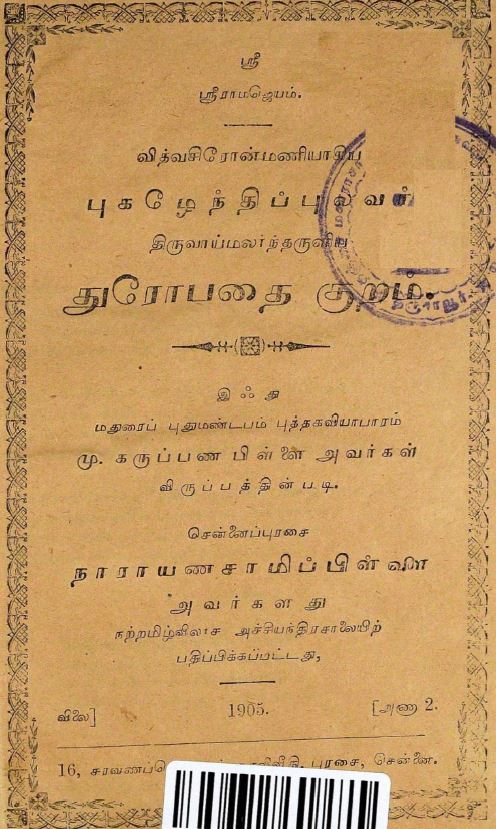 ஸ்ரீ
ஸ்ரீராமஜெயம்.
வித்வசிரோன்மணியாகிய
புகழேந்திப்புலவர்
திருவாய்மலர்ந்தருளிய
துரோபதை குறம்.
இஃது
மதுரைப் புதுமண்டபம் புத்தகவியாபாரம்
மு. கருப்பணபிள்ளை அவர்கள்
விருப்பத்தின்படி.
சென்னைப்புரசை
நாராயணசாமிப்பிள்ளை
அவர்களது
நற்றமிழ்விலாச அச்சியந்திரசாலையிற்
பதிப்பிக்கப்பட்டது,
விலை] 1905. [அணா 2.
16, புரசை, சென்னை.
தஞ்சாவூர்